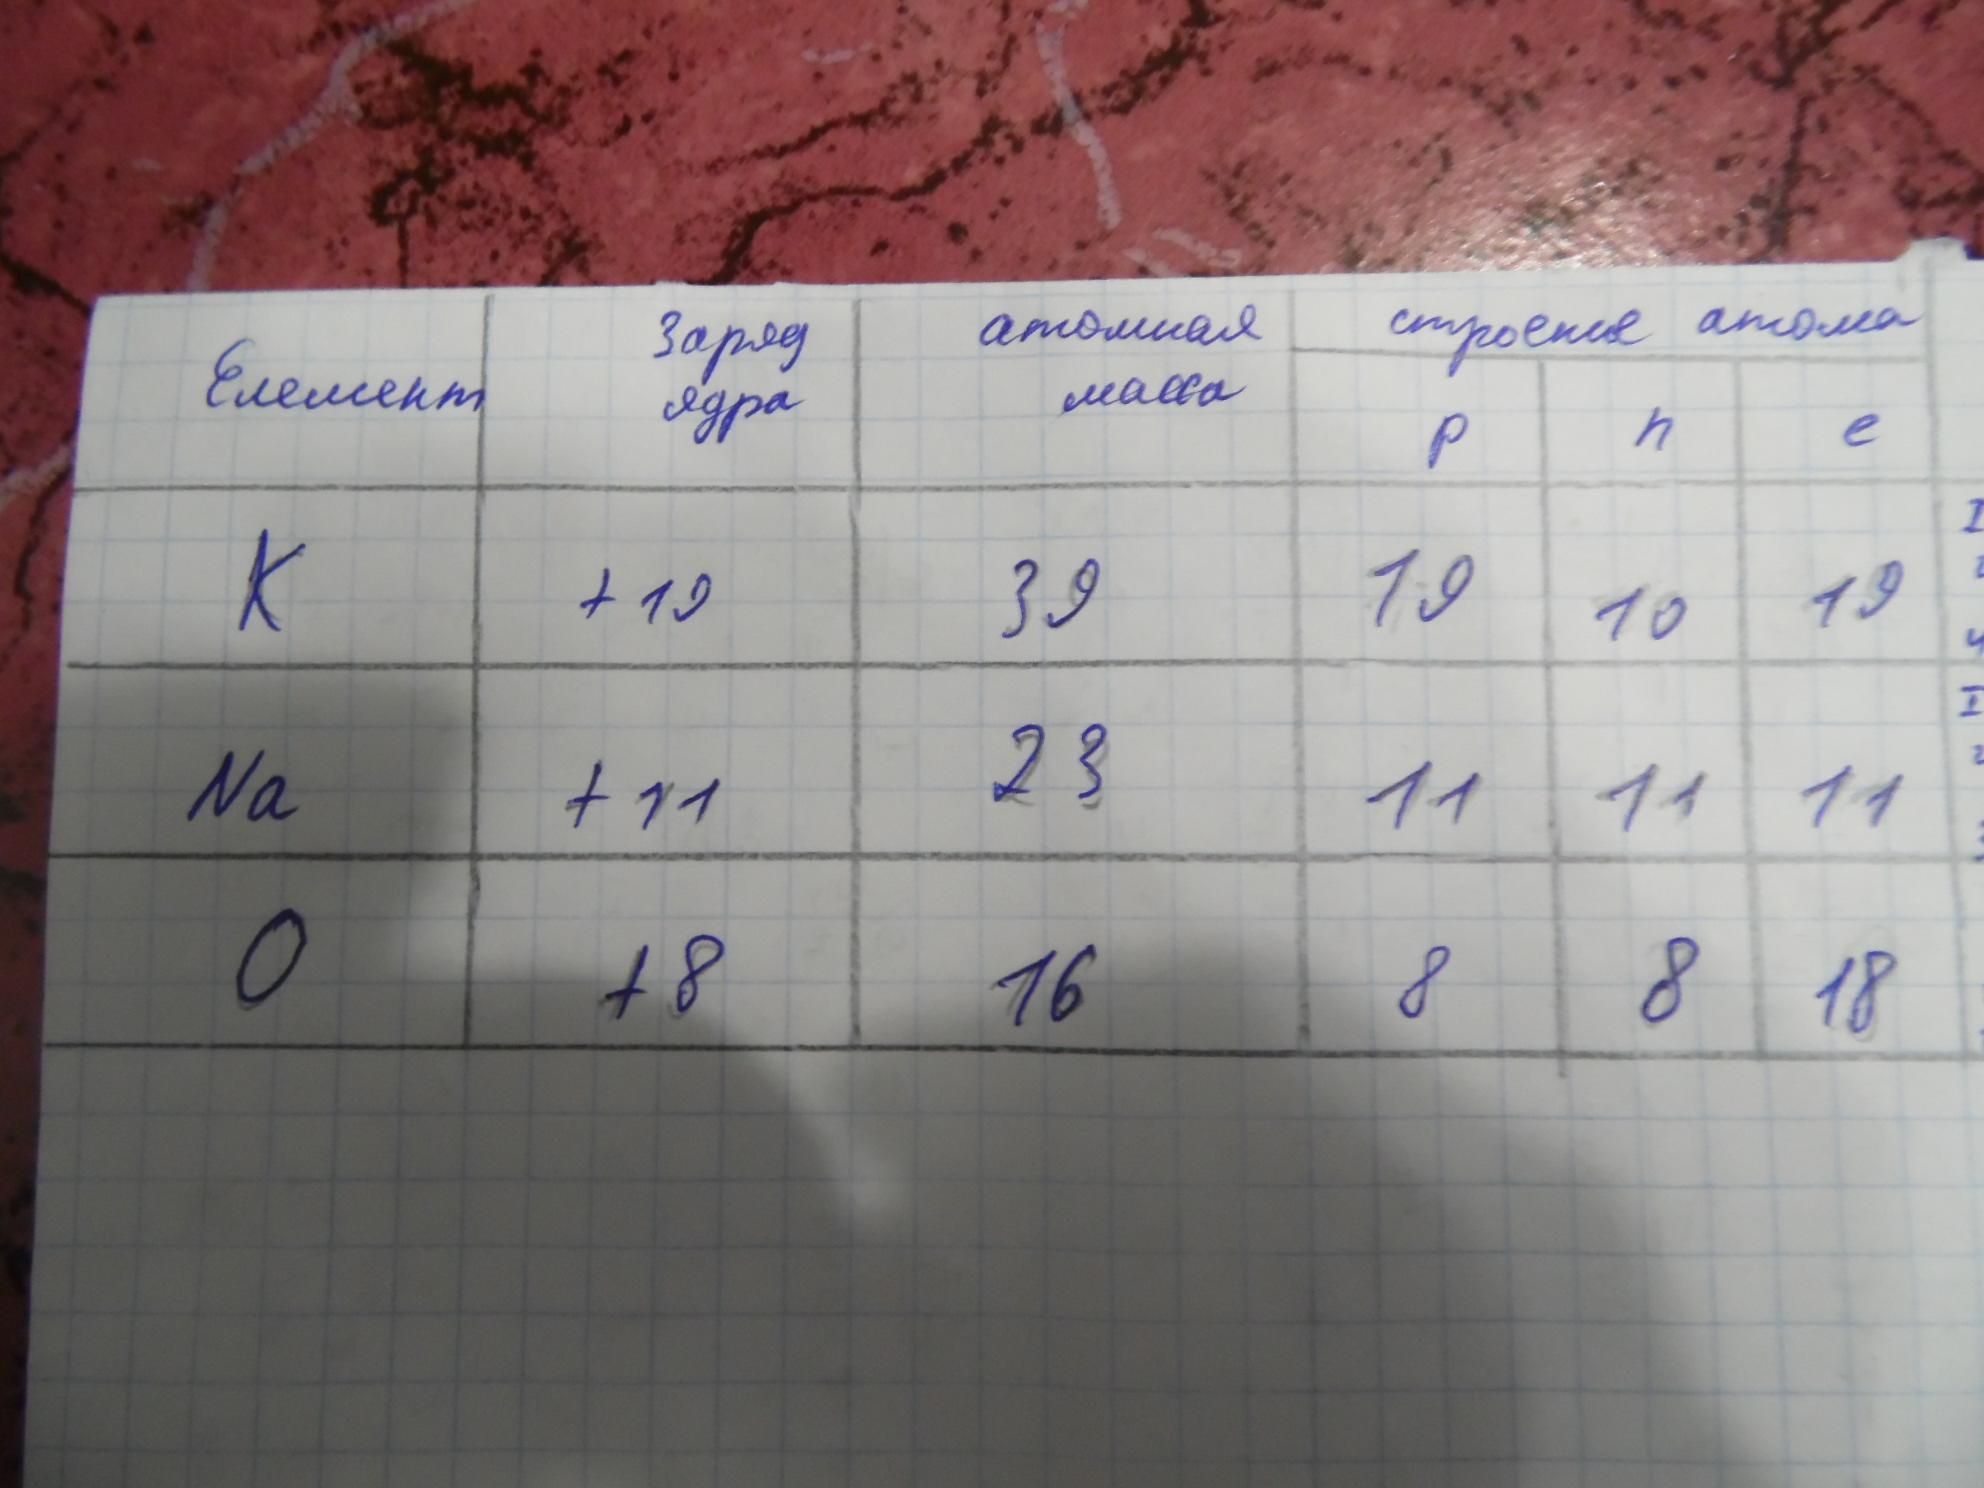 Елемент Заряд ядра атомная масса строение атома
p n e
K +19 39 19 10 19
Na +11 23 11 11 11
O +8 16 8 8 18